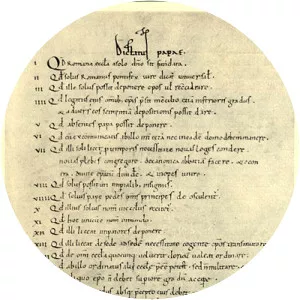 Dictatus papae.
I Qd Romana eccla a solo dno sit fundata.
II Qd solus Romanus pontifex iure dicat universal.
III Qd ille solus possit deponere epos ul reconciliare.
IIII Qd legatus eius omib. epis presit in concilio etia inferioris gradus.
& adversus eos sententia depositionis possit dare.
V Qd absentes papa possit deponere.
VI Qd cu excommunicatis ab illo int cetera nec in eade domo debemus manere.
VII Qd illi soli licet p temporis necessitate novas leges condere
novas plebes congregare. de canonica abbatia facere. & e con
tra. divite epatu dividere. & inopes unire.
VIII Qd solus possit uti imperialib. insigniis.
VIIII Qd solius pape pedes omnes principes deosculent.
X Qd illius solius nom in ecclis recitet.
XI Qd hoc unicu e nom in mundo.
XII Qd illi liceat imperatores deponere.
XIII Qd illi liceat de sede ad sede necessitate cogente epos transmutare.
XIIII Qd de omi eccla quocunq voluerit clericu valeat ordinare.
XV Qd ab illo ordinatus alii eccle pee potest. sed n militare.
ab aliquo epo n debet superiore gradu accipe.
absq precepto eius debet